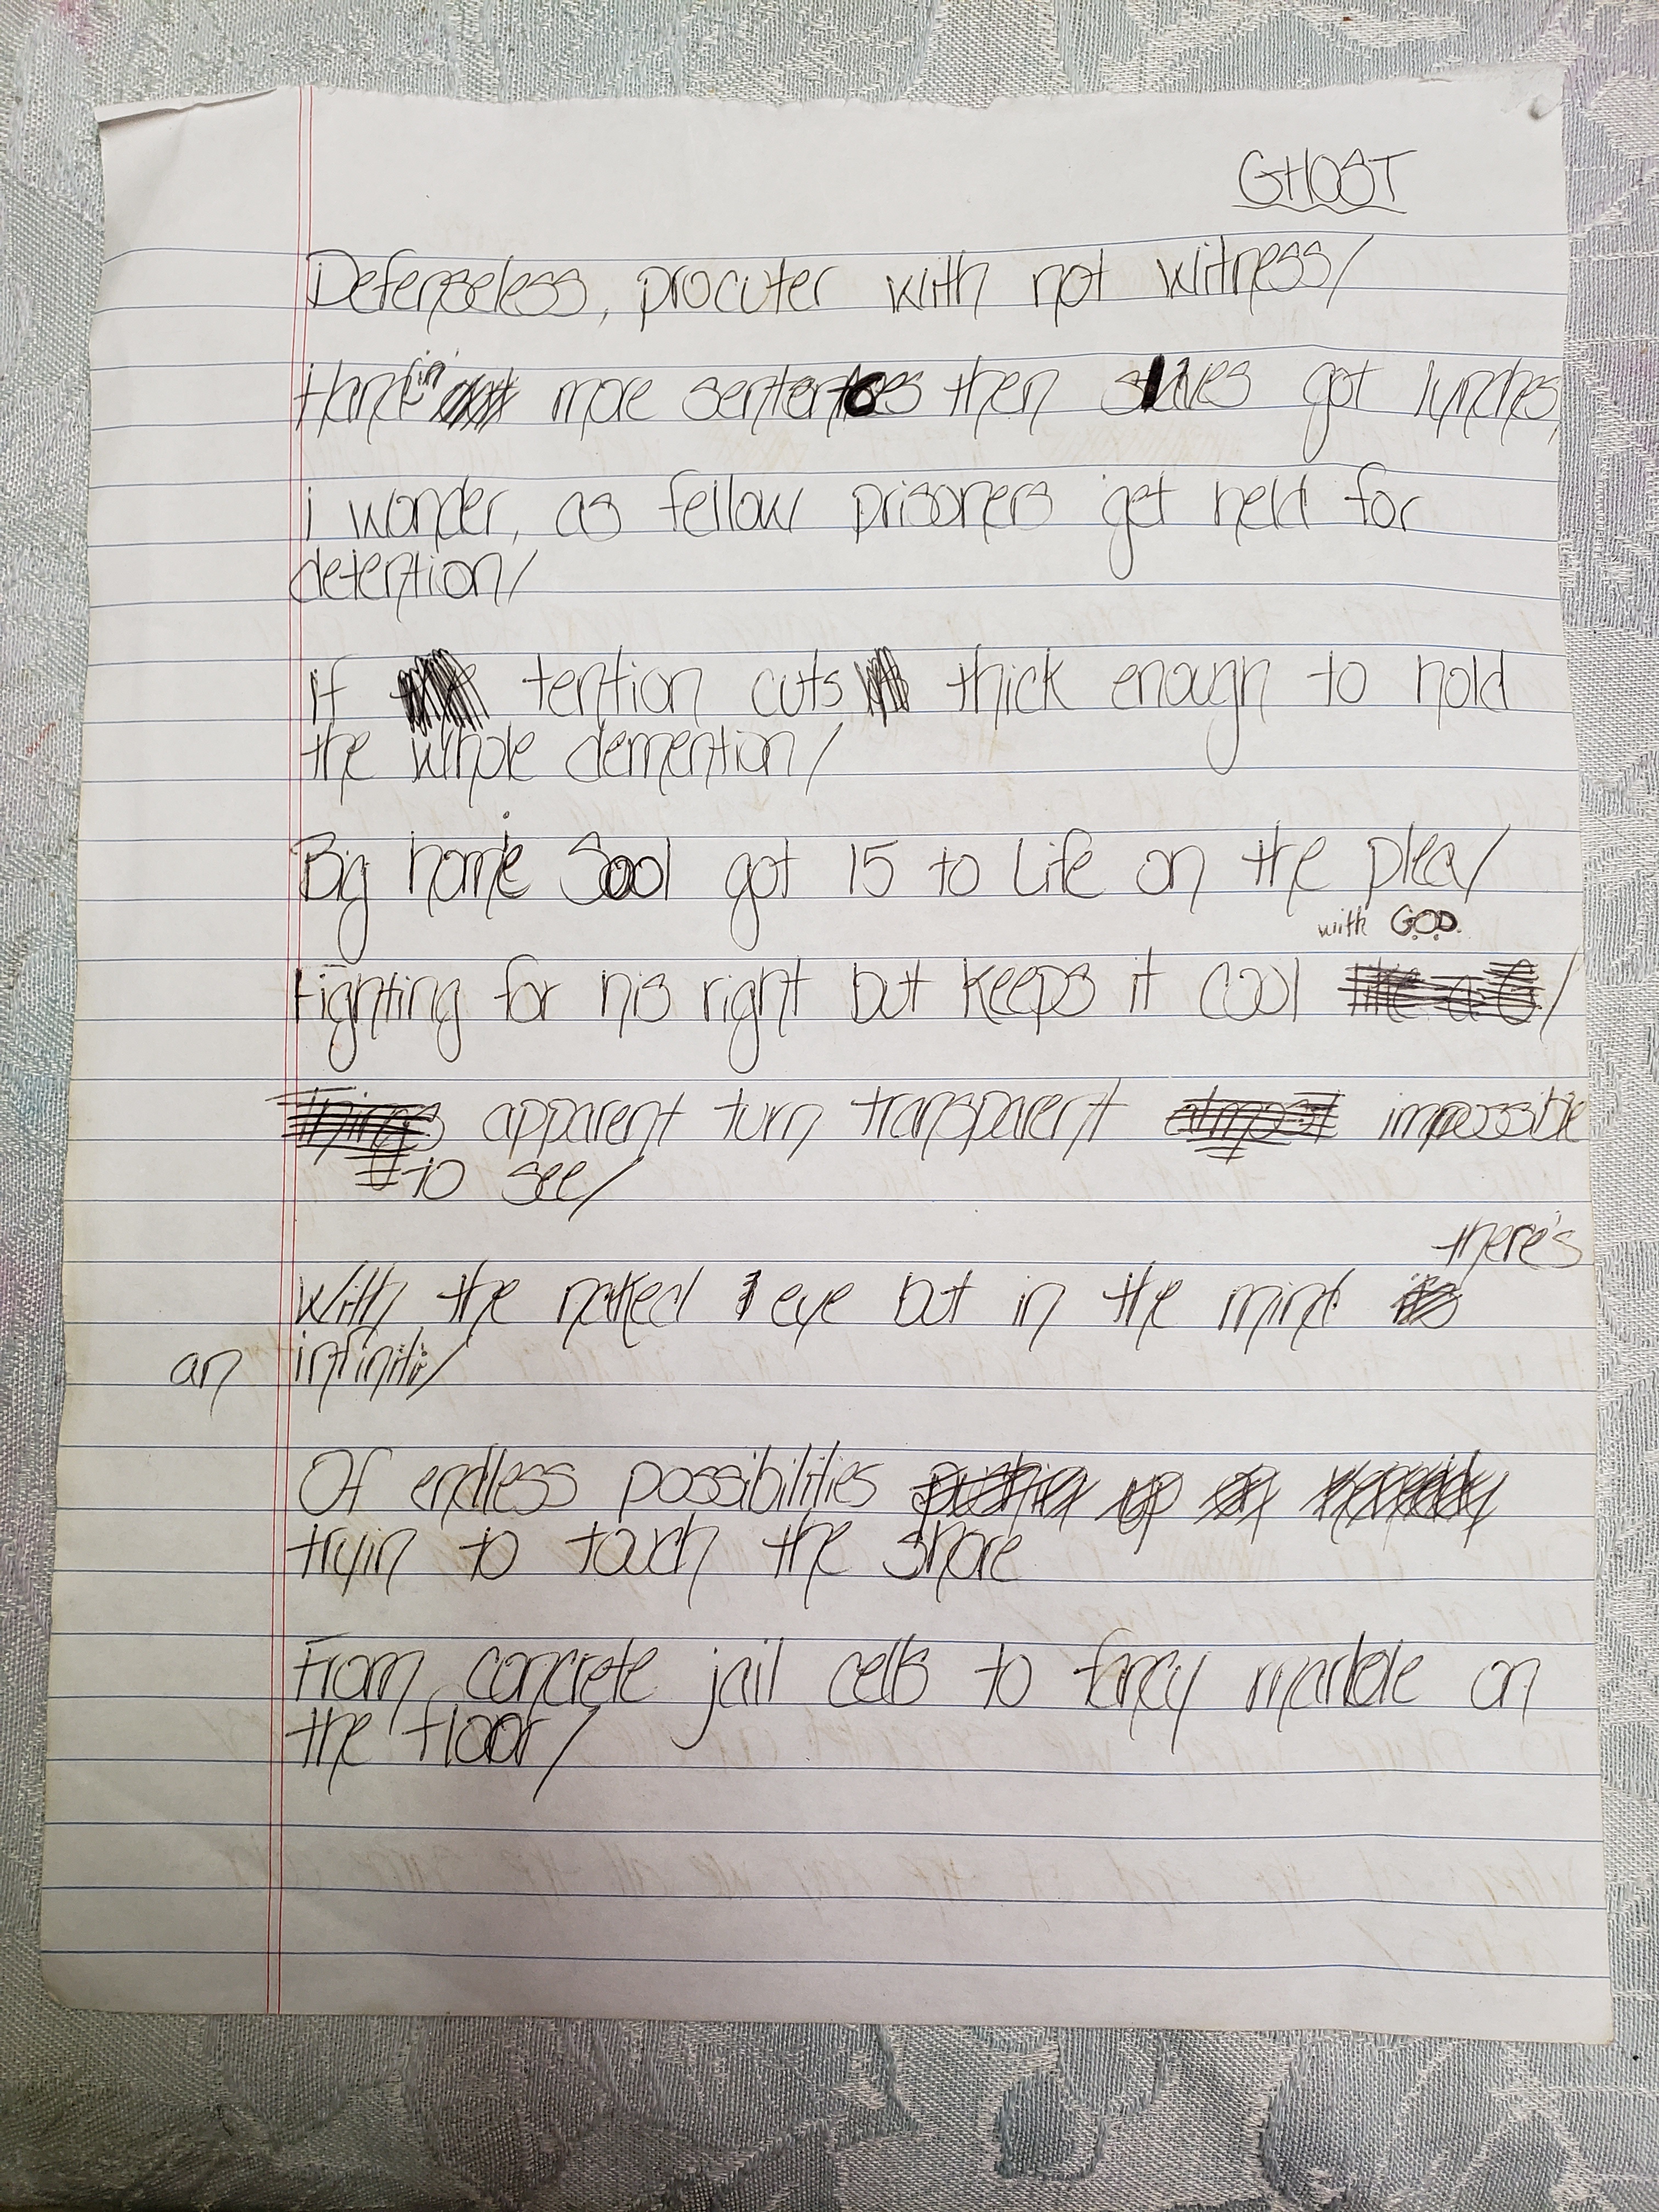 GHOST
Defenseless, procuter with not witness/
more sentences then slaves got lynches,
i wonder, as fellow prisoners get held for
detention/
If tention cuts thick enough to hold
the whole demention/
Big homie Sool got 15 to Life on the plea/
with G.O.D.
Fighting for his right but keeps it cool like a G/
things apparent turn transparent almost impossible
to see/
there's
With the naked eye but in the mind its
an infiniti/
Of endless possibilities pushin up
tryin to touch the shore
From concrete jail cells to fancy marble on
the floor/